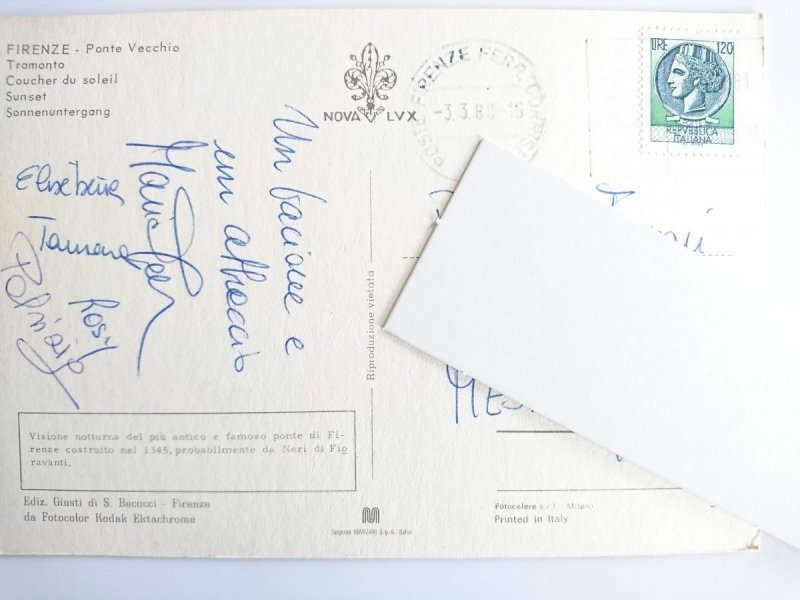 FIRENZE - Ponte Vecchio
Tramonto
Coucher du soleil
Sunset
Sonnenuntergang
NOVA LVX
POSTE FIRENZE FERR. CORRISP
-3.3.8 -15
LIRE 120
REPVBBLICA
ITALIANA
Un bacione e
un abbraccio
Elisabetta
Tamara
Rosy
Patrizia
Riproduzione vietata
Visione notturna del più antico e famoso ponte di Fi-
renze costruito nel 1345, probabilmente da Neri di Fio
ravanti.
Ediz. Giusti di S. Becocci - Firenze
da Fotocolor Kodak Ektachrome
MANZARI S.p.A.
Fotocelere s.r.l. - Milano
Printed in Italy